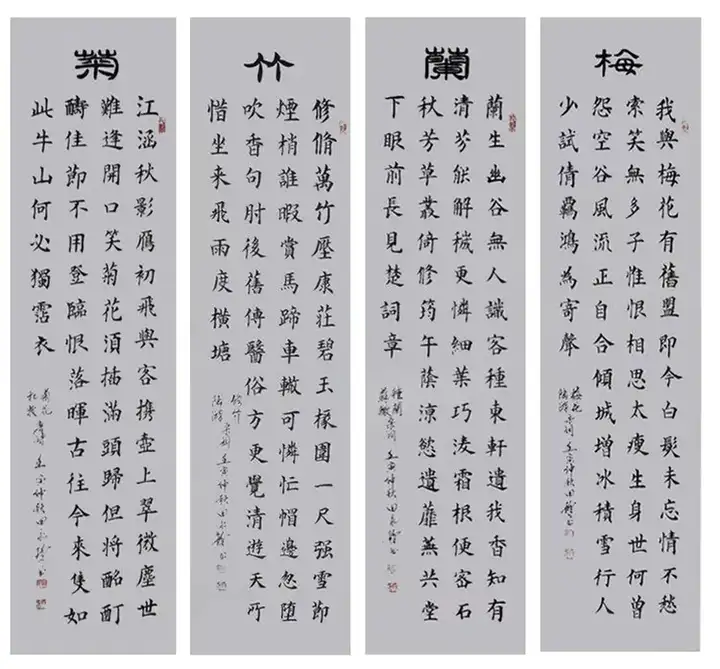 梅
我與梅花有舊盟即今白髮未忘情不愁
索笑無多子惟恨相思太瘦生身世何曾
怨空谷風流正自合傾城增冰積雪行人
少試倩羈鴻為寄聲
梅花
陸游
蘭
蘭生幽谷無人識客種東軒遺我香知有
清芬能解穢更憐細葉巧淩霜根便密石
秋芳草叢倚修筠午蔭涼慾遺蘼蕪共堂
下眼前長見楚詞章
種蘭
蘇轍
竹
修脩萬竹壓康莊碧玉椽圍一尺强雪即
煙梢誰暇賞馬蹄車轍可憐忙帽邊忽墮
吹香句肘後舊傳醫俗方更覺清遊天所
惜坐來飛雨度橫塘
陸游
菊
江涵秋影雁初飛與客携壺上翠微塵世
難逢開口笑菊花須插滿頭歸但將酩酊
酬佳節不用登臨恨落暉古往今來隻如
此牛山何必獨霑衣
菊花
杜牧